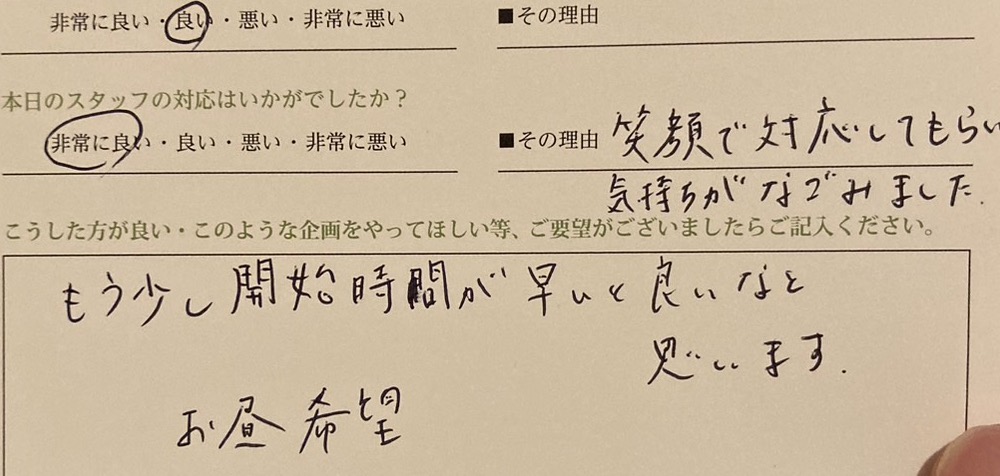 非常に良い・良い・悪い・非常に悪い
■その理由
本日のスタッフの対応はいかがでしたか？
非常に良い・良い・悪い・非常に悪い
■その理由 笑顔で対応してもらい
気持ちがなごみました.
こうした方が良い・このような企画をやってほしい等、ご要望がございましたらご記入ください。
もう少し開始時間が早いと良いなと
思います.
お昼希望